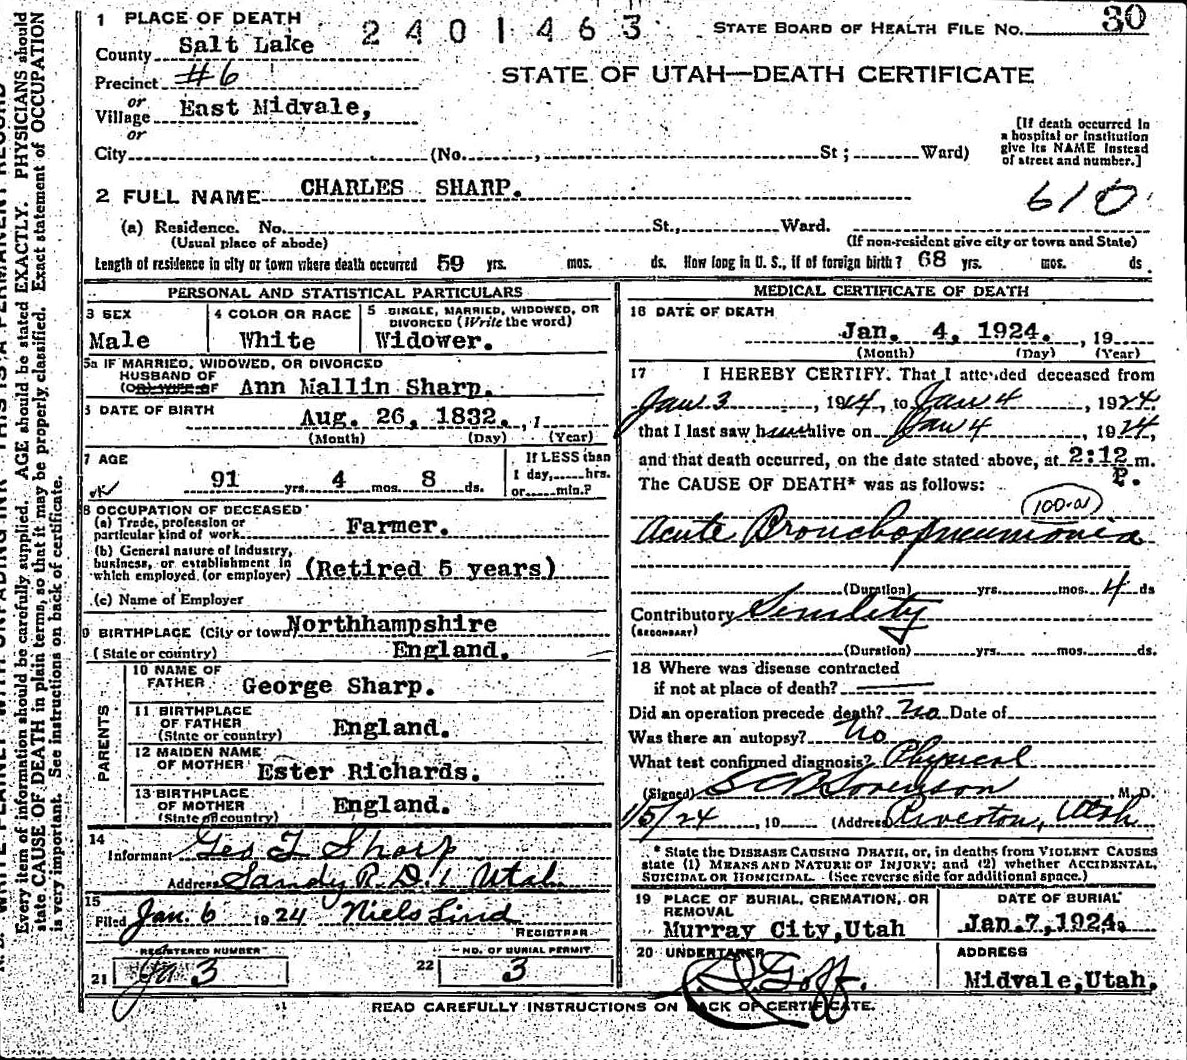 1 PLACE OF DEATH 2401463 STATE BOARD OF HEALTH FILE No. 30
County Salt Lake
STATE OF UTAH—DEATH CERTIFICATE
Precinct #6
or
Village East Midvale,
or
City (No. , St ; Ward)
[If death occurred in
a hospital or institution
give its NAME instead
of street and number.]
2 FULL NAME CHARLES SHARP.
610
(a) Residence. No. St., Ward.
(Usual place of abode) (If non-resident give city or town and State)
Length of residence in city or town where death occurred 59 yrs. mos. ds. How long in U. S., if of foreign birth? 68 yrs. mos. ds.
PERSONAL AND STATISTICAL PARTICULARS
3 SEX
Male
4 COLOR OR RACE
White
5 SINGLE, MARRIED, WIDOWED, OR
DIVORCED (Write the word)
Widower.
5a IF MARRIED, WIDOWED, OR DIVORCED
HUSBAND OF
(OR) WIFE OF Ann Mallin Sharp.
6 DATE OF BIRTH
Aug. 26, 1832. , 1
(Month) (Day) (Year)
7 AGE
91 yrs. 4 mos. 8 ds.
If LESS than
1 day, hrs.
or min.?
8 OCCUPATION OF DECEASED
(a) Trade, profession or
particular kind of work Farmer.
(b) General nature of industry,
business, or establishment in
which employed (or employer) (Retired 5 years)
(c) Name of Employer
9 BIRTHPLACE (City or town) Northhampshire
(State or country) England.
PARENTS
10 NAME OF
FATHER George Sharp.
11 BIRTHPLACE
OF FATHER England.
(State or country)
12 MAIDEN NAME
OF MOTHER Ester Richards.
13 BIRTHPLACE
OF MOTHER England.
(State or country)
14
Informant Geo T Sharp
Address Sandy R.D. 1 Utah
15
Filed Jan. 6 1924 Niels Lind
REGISTRAR
REGISTERED NUMBER
21 3
NO. OF BURIAL PERMIT
22 3
MEDICAL CERTIFICATE OF DEATH
16 DATE OF DEATH
Jan. 4, 1924. , 19
(Month) (Day) (Year)
17 I HEREBY CERTIFY. That I attended deceased from
Jan 3 , 1914, to Jan 4 , 1924
that I last saw him alive on Jan 4 , 1924,
and that death occurred, on the date stated above, at 2:12 m.
P.
The CAUSE OF DEATH* was as follows:
100-a
Acute Bronchopneumonia
(Duration) yrs. mos. 4 ds
Contributory Senility
(SECONDARY)
(Duration) yrs. mos. ds.
18 Where was disease contracted
if not at place of death?
Did an operation precede death? No Date of
Was there an autopsy? No
What test confirmed diagnosis? Physical
(Signed) Sorenson M. D.
1/5/24, 19 (Address) Riverton, Utah
* State the DISEASE CAUSING DEATH, or, in deaths from VIOLENT CAUSES
state (1) MEANS AND NATURE OF INJURY; and (2) whether ACCIDENTAL,
SUICIDAL OR HOMICIDAL. (See reverse side for additional space.)
19 PLACE OF BURIAL, CREMATION, OR
REMOVAL
Murray City, Utah
DATE OF BURIAL
Jan.7,1924.
20 UNDERTAKER
Goff.
ADDRESS
Midvale,Utah.
READ CAREFULLY INSTRUCTIONS ON BACK OF CERTIFICATE.
Every item of information should be carefully supplied. AGE should be stated EXACTLY. PHYSICIANS should
state CAUSE OF DEATH in plain terms, so that it may be properly classified. Exact statement of OCCUPATION
is very important. See instructions on back of certificate.